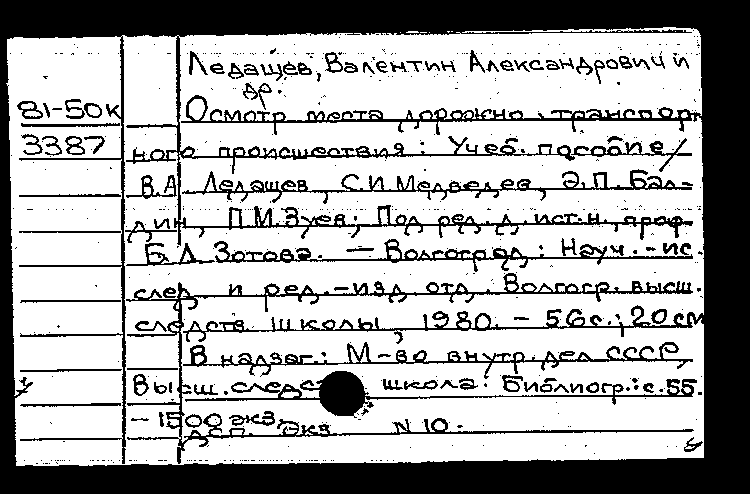 Ледащев, Валентин Александрович и
др.
81-50к Осмотр места дорожно-транспорт
3387 ного происшествия: Учеб. пособие /
В.А Ледащев, С.И. Медведев, Э.П. Бал-
дин, П.М. Зуев; Под ред. д. ист. н., проф.
Б.Л. Зотова. — Волгоград: Науч.-ис.
след. и ред.-изд. отд. Волгогр. высш.
следств. школы, 1980. - 56с.; 20 см
В надзаг.: М-во внутр. дел СССР,
Высш. следст школа. Библиогр.: с. 55.
- 1500 экз.
ДСП. Экз N 10.